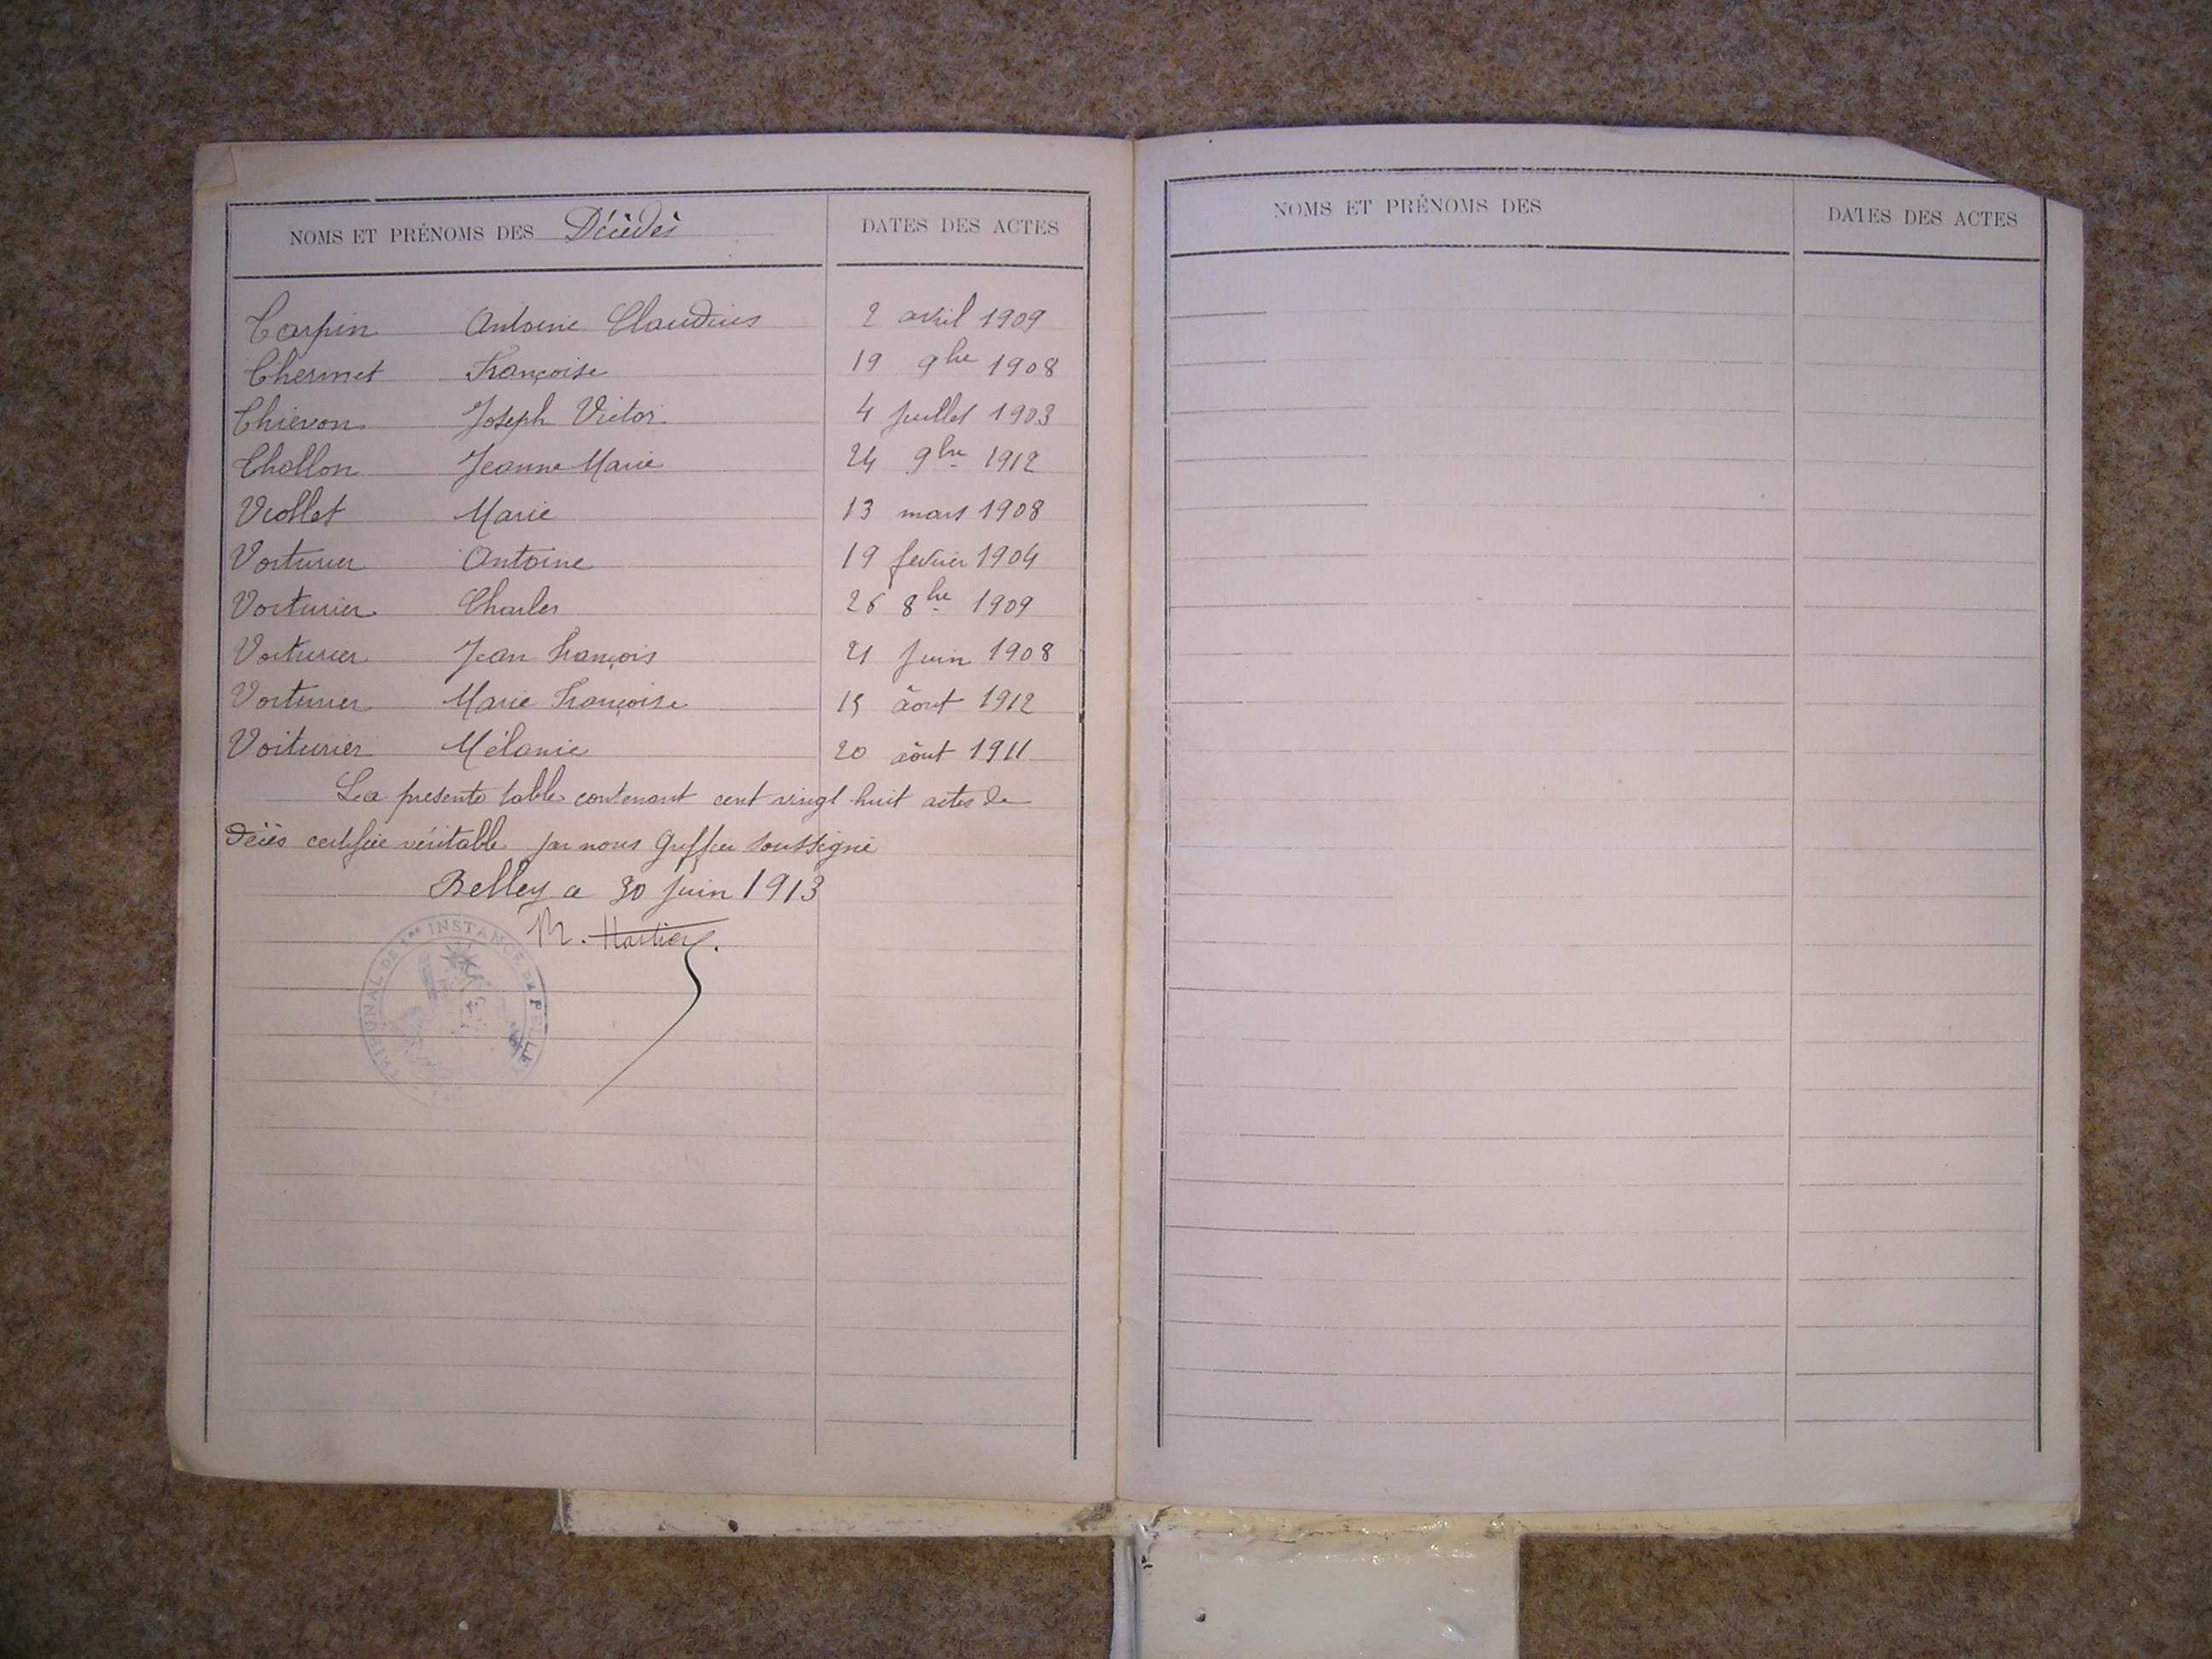 NOMS ET PRÉNOMS DES Décédés DATES DES ACTES
Carpin Antoine Claudius 2 avril 1909
Thermet Françoise 19 9bre 1908
Thiévon Joseph Victor 4 juillet 1903
Thollon Jeanne Marie 24 9bre 1912
Viollet Marie 13 mars 1908
Voiturier Antoine 19 fevrier 1904
Voiturier Charles 26 8bre 1909
Voiturier Jean François 21 juin 1908
Voiturier Marie Françoise 15 âout 1912
Voiturier Mélanie 20 âout 1911
La presente table contenant cent vingt huit actes de
décès certifiée véritable par nous Greffier soussigné
Belley a 30 juin 1913
TRIBUNAL DE 1re INSTANCE DE BELLEY
NOMS ET PRÉNOMS DES DATES DES ACTES